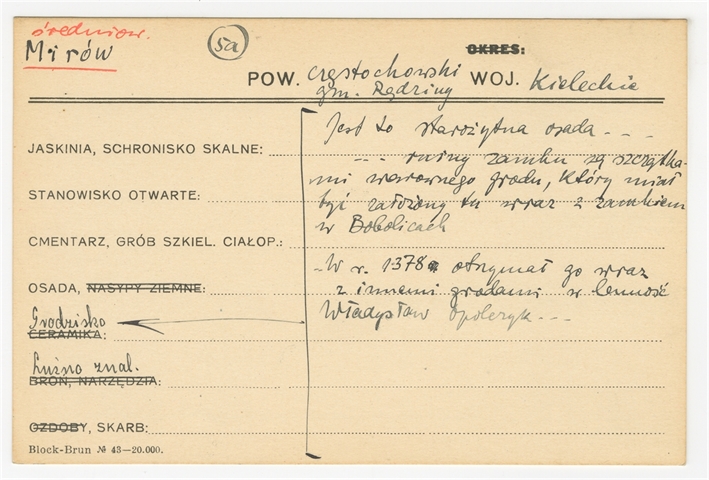 średniow.
Mirów
5a
OKRES:
POW. częstochowski WOJ. Kieleckie
gm. Rędziny
JASKINIA, SCHRONISKO SKALNE:
STANOWISKO OTWARTE:
CMENTARZ, GRÓB SZKIEL. CIAŁOP.:
OSADA, NASYPY ZIEMNE:
Grodzisko
CERAMIKA:
Luźno znal.
BROŃ, NARZĘDZIA:
OZDOBY, SKARB:
Block-Brun № 43—20.000.
Jest to starożytna osada - - -
- - - ruiny zamku są szczątka-
mi warownego grodu, który miał
być założony tu wraz z zamkiem
w Bobolicach
- W r. 1378 otrzymał go wraz
z innemi grodami w lenność
Władysław Opolczyk - - -